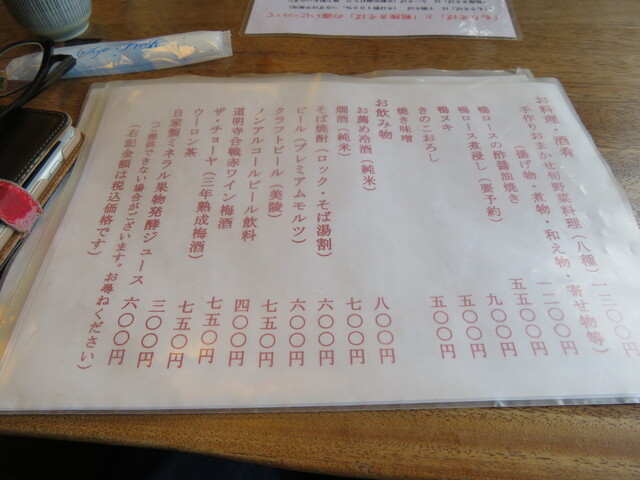 お料理・酒肴
手作りおまかせ旬野菜料理(八種) 一三〇〇円
(揚げ物・煮物・和え物・寄せ物等)
鴨ロースの酢醤油焼き
鴨ロース煮浸し(要予約) 五五〇円
鴨ヌキ 九〇〇円
きのこおろし 五〇〇円
焼き味噌 五〇〇円
お飲み物
お薦め冷酒(純米) 八〇〇円
燗酒(純米) 七〇〇円
そば焼酎(ロック・そば湯割) 六〇〇円
ビール(プレミアムモルツ) 六〇〇円
クラフトビール(美陵) 七五〇円
ノンアルコールビール飲料 四〇〇円
道明寺合戦赤ワイン梅酒 七五〇円
ザ・チョーヤ(三年熟成梅酒) 七五〇円
ウーロン茶 三〇〇円
自家製ミネラル果物発酵ジュース 六〇〇円
(ご提供できない場合がございます。お尋ねください)
(右記金額は税込価格です)
「もりそば」と「粗挽きそば」の違いについて